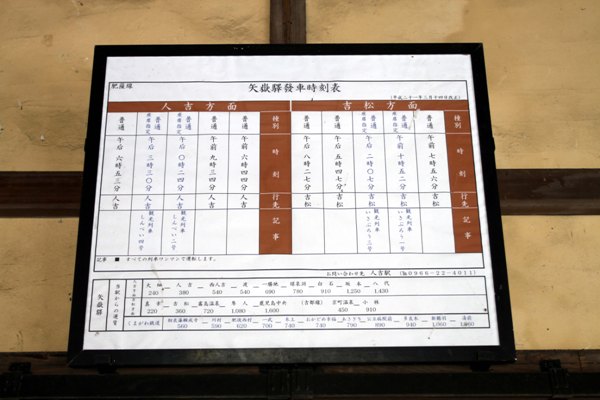 肥薩線
矢嶽驛發車時刻表
(平成二十一年三月十四日改正)
人吉方面
吉松方面
種別 普通 普通 普通 普通 普通
座席指定 座席指定
時刻 午前七時五六分 午前十時五二分 午后二時〇七分 午后五時四七分 午后八時二七分
行先 吉松 吉松 吉松 吉松 吉松
記事 観光列車いさぶろう一号 観光列車いさぶろう三号
種別 普通 普通 普通 普通 普通
座席指定 座席指定
時刻 午前六時四四分 午前九時三四分 午后〇時四二分 午后三時三〇分 午后六時五三分
行先 人吉 人吉 人吉 人吉 人吉
記事 観光列車しんぺい二号 観光列車しんぺい四号
記事 ■ すべての列車ワンマンで運転します。
お問い合わせ先 人吉駅 (℡0966-22-4011)
矢嶽驛
当駅からの運賃
大畑 人吉 西人吉 渡 一勝地 球泉洞 白石 坂本 八代
240 380 540 540 690 780 910 1,250 1,430
真幸 吉松 霧島温泉 隼人 鹿児島中央 (吉都線) 京町温泉 小林
220 360 720 1,080 1,600 450 910
くまがわ鉄道 相良藩願成寺 川村 肥後西村 一武 木上 おかどめ幸福 あさぎり 東免田 公立病院前 多良木 新鶴羽 湯前
560 590 620 700 740